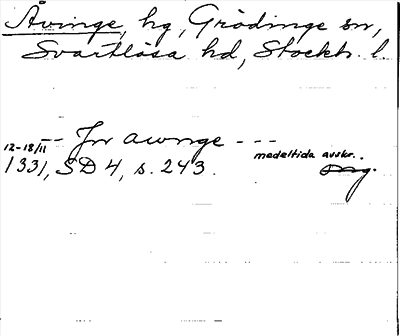 Åvinge, hg, Grödinge sn,
Svartlösa hd, Stockh. l.
-- Jn awnge ---
12-18/11 medeltida avskr..
1331, SD 4, s. 243. org.